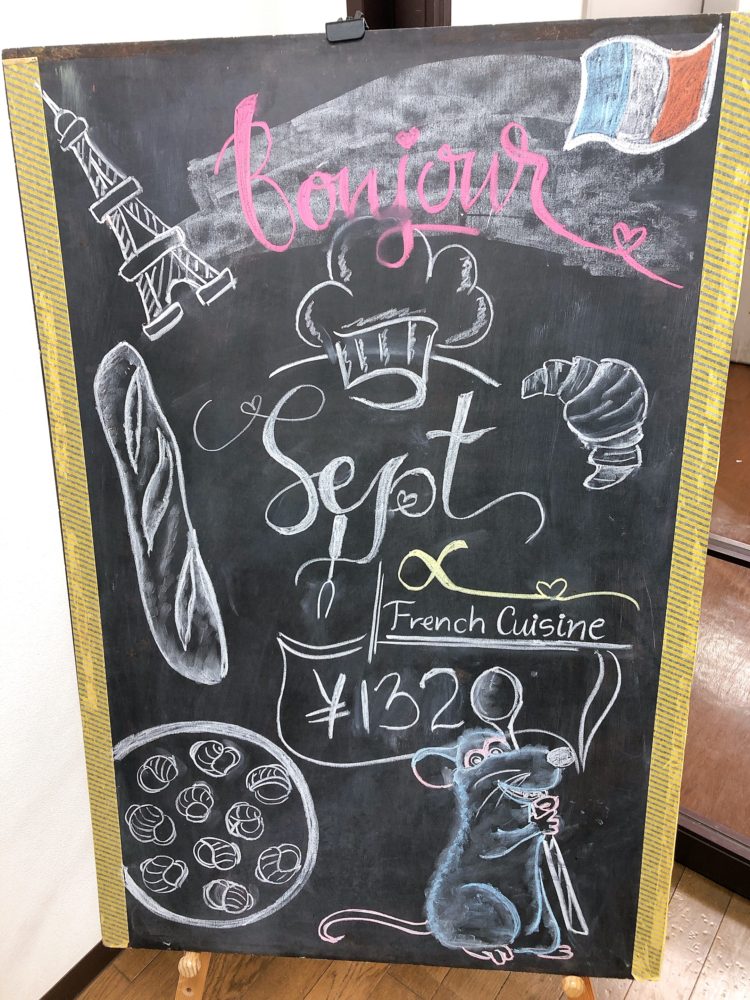 Bonjour
Sept
French Cuisine
¥1320